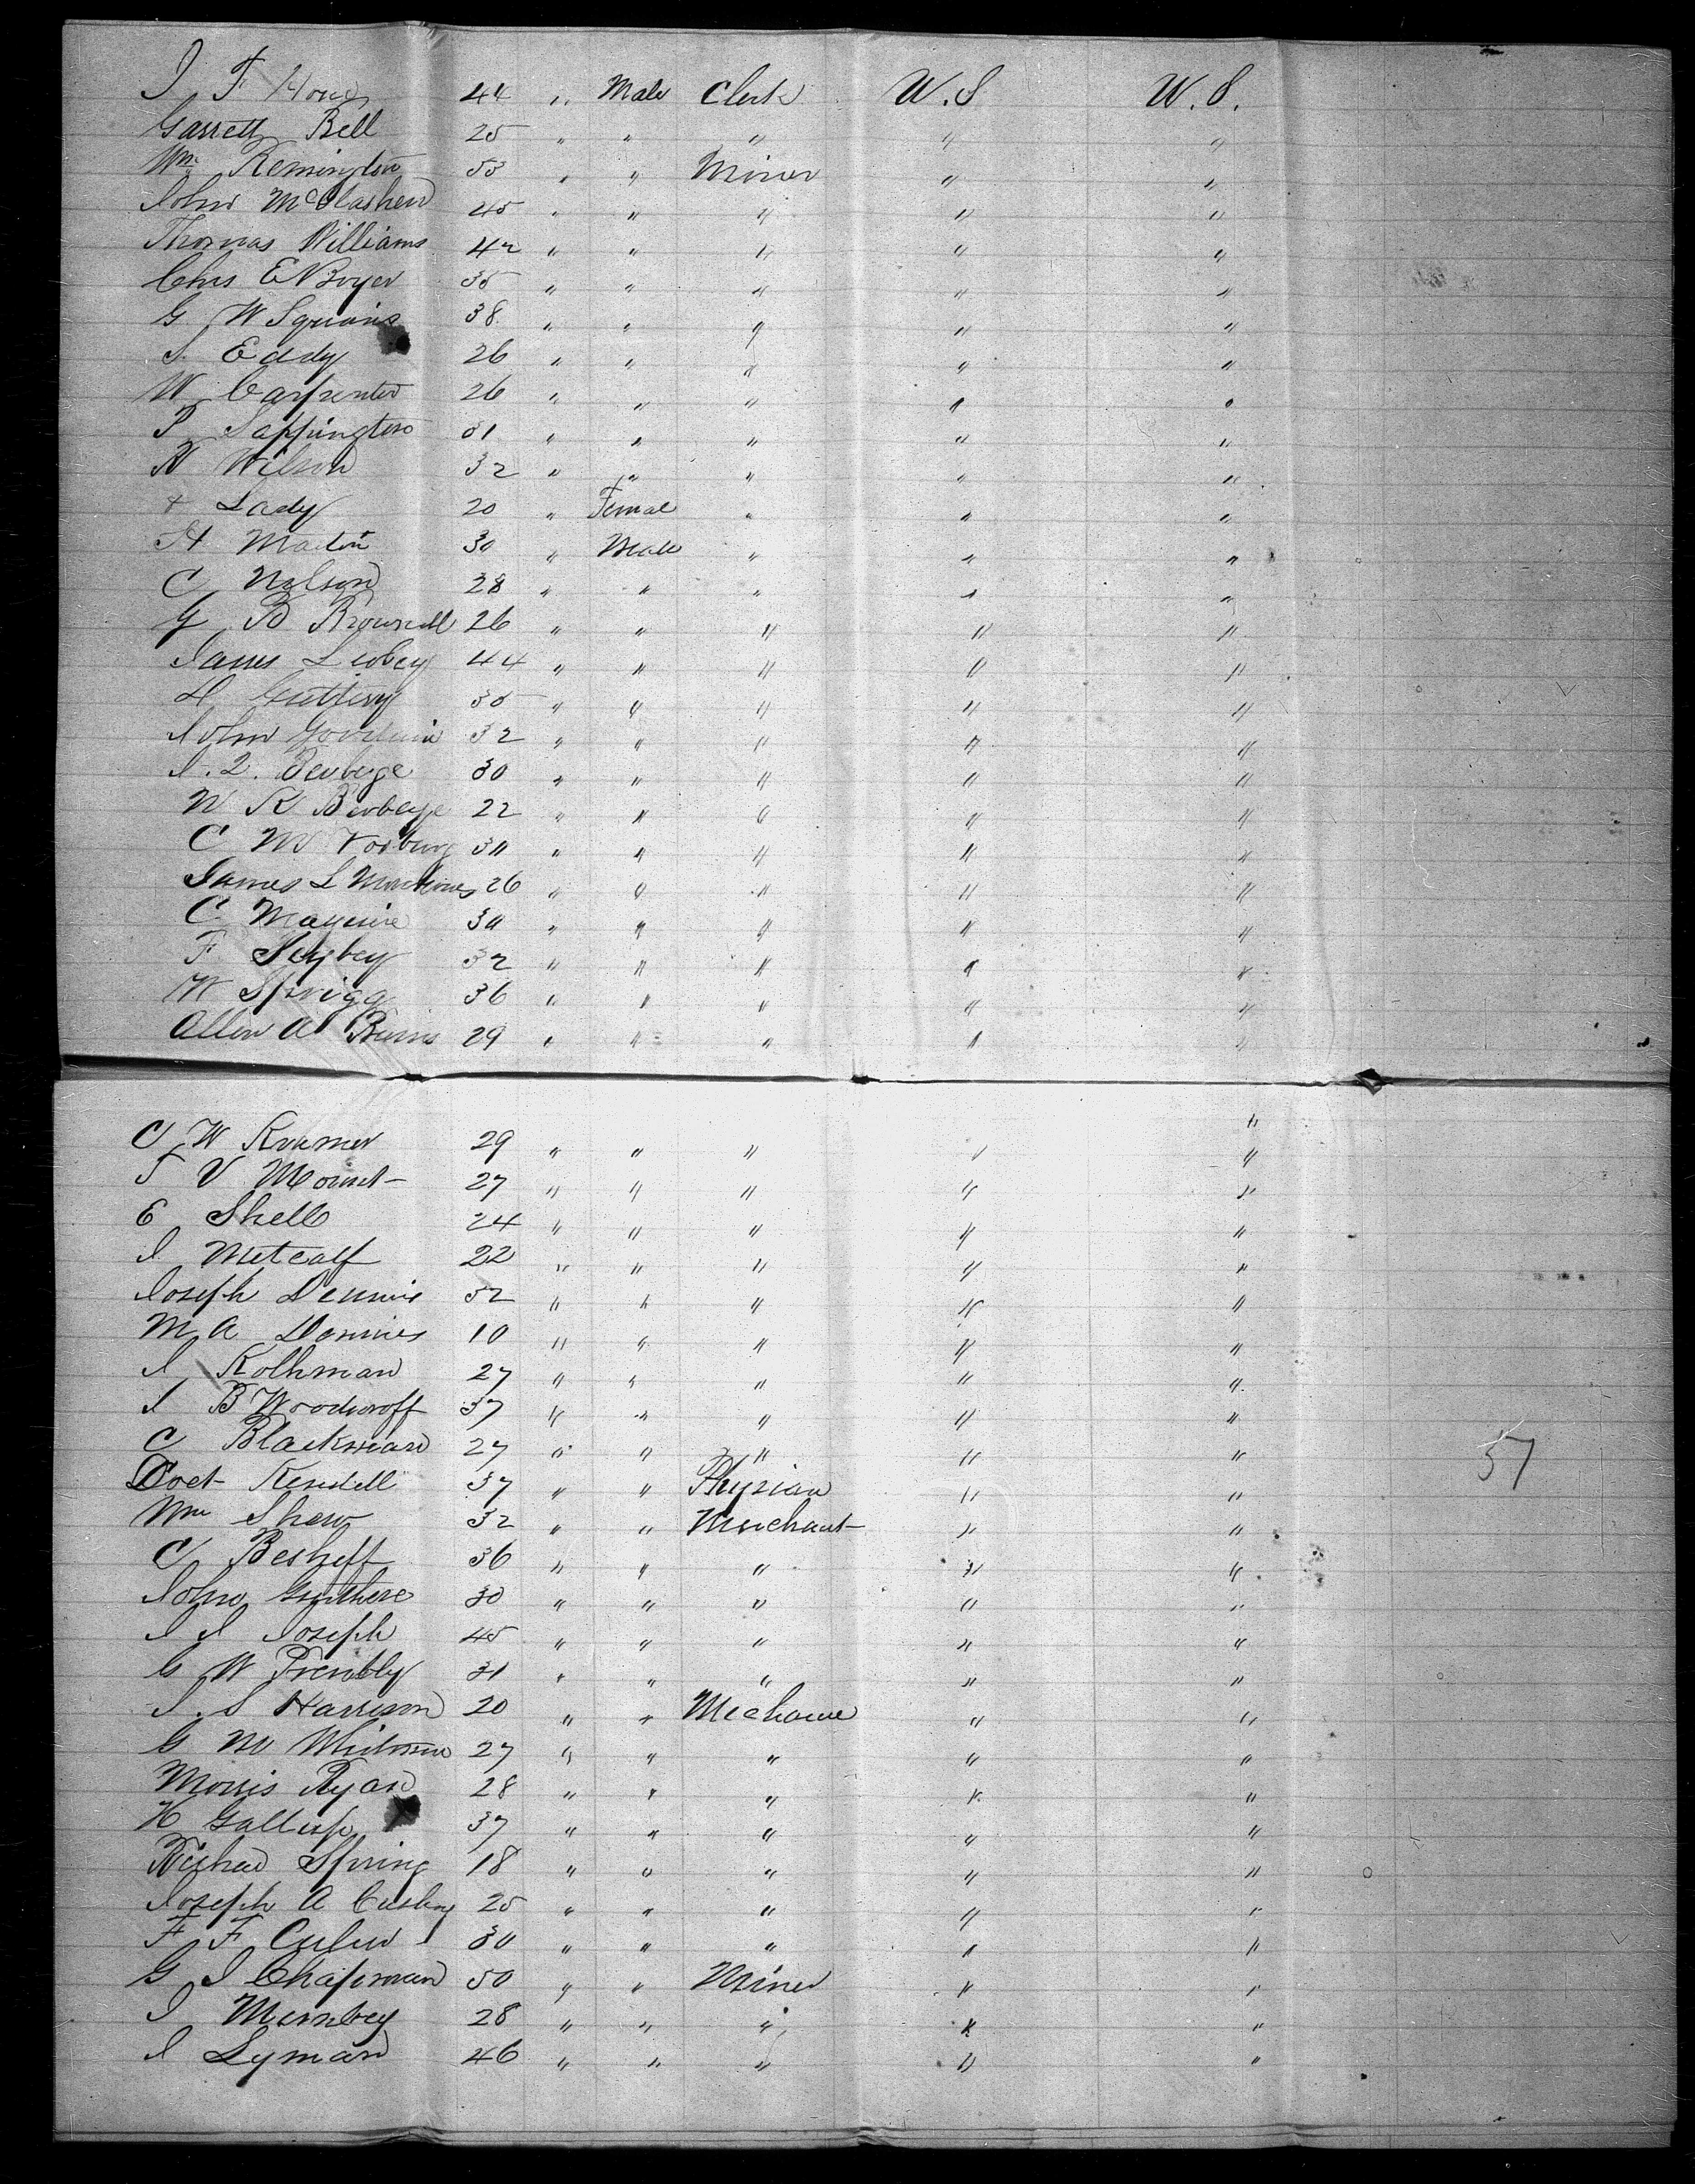 J F Hone 44 " Male Clerk W.S W.S.
Garrett Bell 25 " " " " "
Wm Remington 53 " " Miner " "
John McClashen 45 " " " " "
Thomas Williams 42 " " " " "
Chs E Boyer 35 " " " " "
G W Squairs 38 " " " " "
S. Eddy 26 " " " " "
W Carpenter 26 " " " " "
P Sappington 31 " " " " "
H Wilson 32 " " " " "
+ Lady 20 " Femal " " "
H Martin 30 " Male " " "
C Nelson 28 " " " " "
G B Brownell 26 " " " " "
James Libbey 44 " " " " "
35 " " " " "
John Goodwin 32 " " " " "
30 " " " " "
W R 22 " " " " "
C M Vosburg 30 " " " " "
James L 26 " " " " "
C Maguire 30 " " " " "
F 32 " " " " "
W Sprigg 36 " " " " "
Allen A Burns 29 " " " " "
"
C W Kramer 29 " " " " "
T V Mount 27 " " " " "
E Shell 24 " " " " "
J Metcalf 22 " " " " "
Joseph Dennis 52 " " " " "
M A Dennies 10 " " " " "
J Kolhman 27 " " " " "
J B Woodcroff 37 " " " " "
C Blackman 27 " " " " "
57
Doct Kendell 37 " " Physian " "
Wm Shaw 32 " " Merchant " "
C Besheff 36 " " " " "
John Guthere 30 " " " " "
J J Joseph 45 " " " " "
G W Trembly 31 " " " " "
J. S Harrison 20 " " Mechanic " "
G M 27 " " " " "
Morris Ryan 28 " " " " "
H Gallup 37 " " " " "
Richard Spring 18 " " " " "
Joseph A Cushing 25 " " " " "
F F Culver 30 " " " " "
G J Chapman 50 " " Miner " "
J 28 " " " " "
J Lyman 46 " " " " "